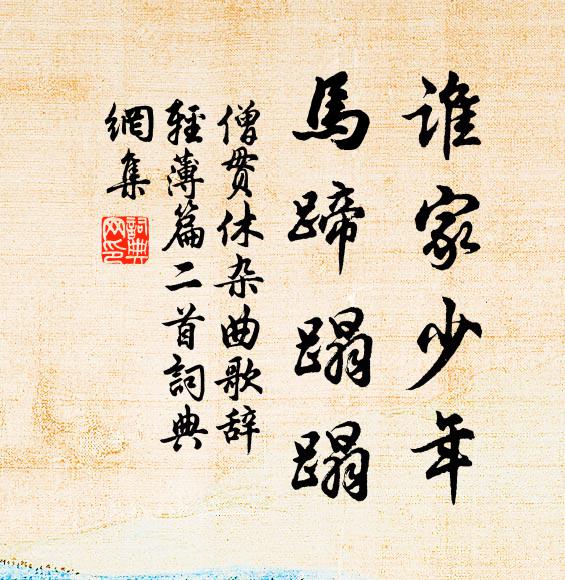 谁家少年
馬蹄蹋蹋
僧贯休杂曲歌辞
輕薄篇二首詞典
網集
詞典网印